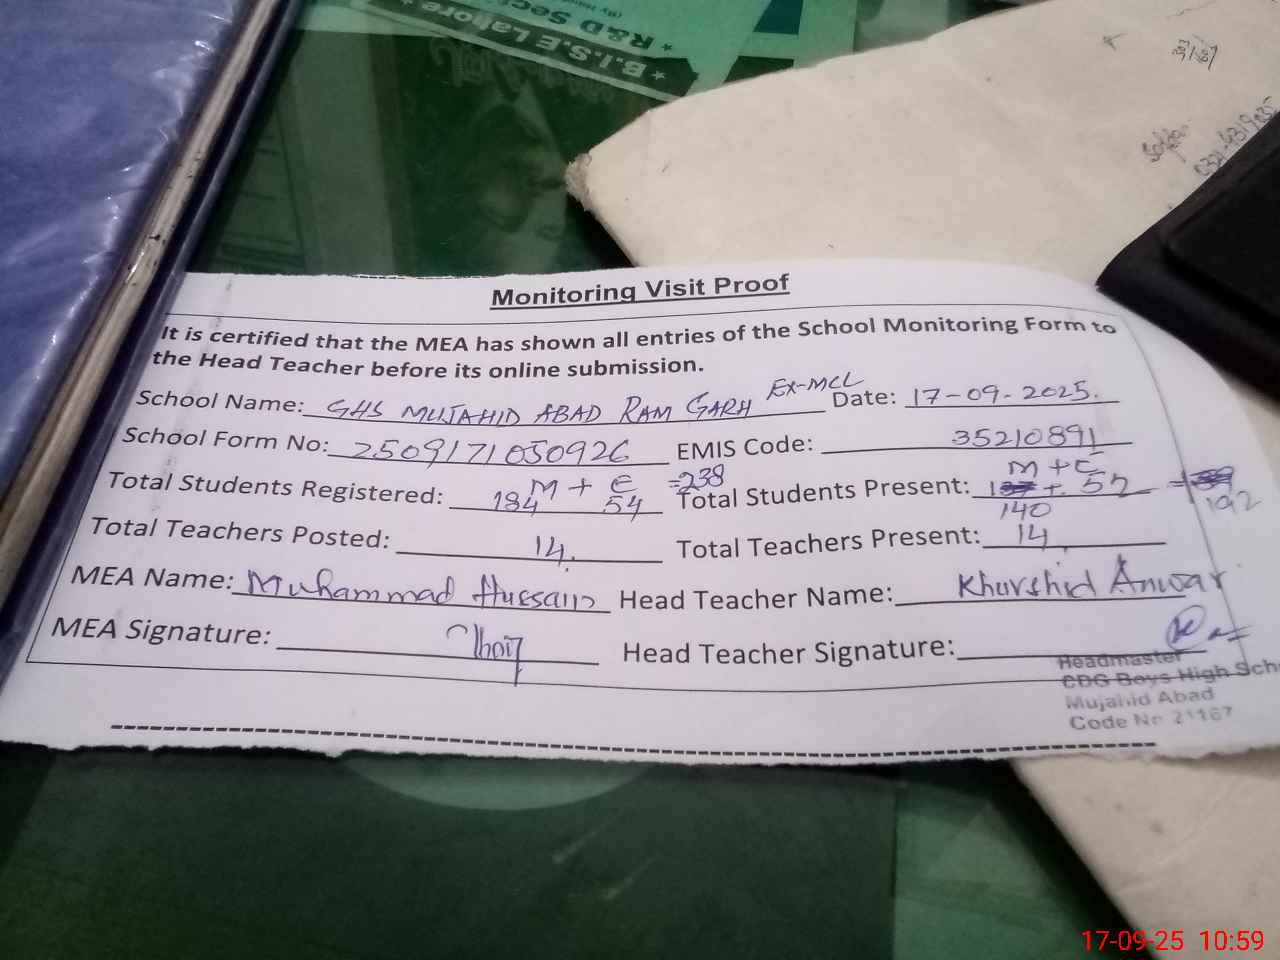 * B.I.S.E Lahore *
* R&D Sec
303
Monitoring Visit Proof
It is certified that the MEA has shown all entries of the School Monitoring Form to
the Head Teacher before its online submission.
School Name: GHS MUJAHID ABAD RAM GARH EX-MCL Date: 17-09-2025.
School Form No: 2509171050926 EMIS Code: 35210891
Total Students Registered: M + E 184 54 =238 Total Students Present: M + E 140 + 52 = 192
Total Teachers Posted: 14. Total Teachers Present: 14
MEA Name: Muhammad Hussain Head Teacher Name: Khurshid Anwar
MEA Signature: Head Teacher Signature:
Headmaster
CDG Boys High Scho
Mujahid Abad
Code No 21167
17-09-25 10:59